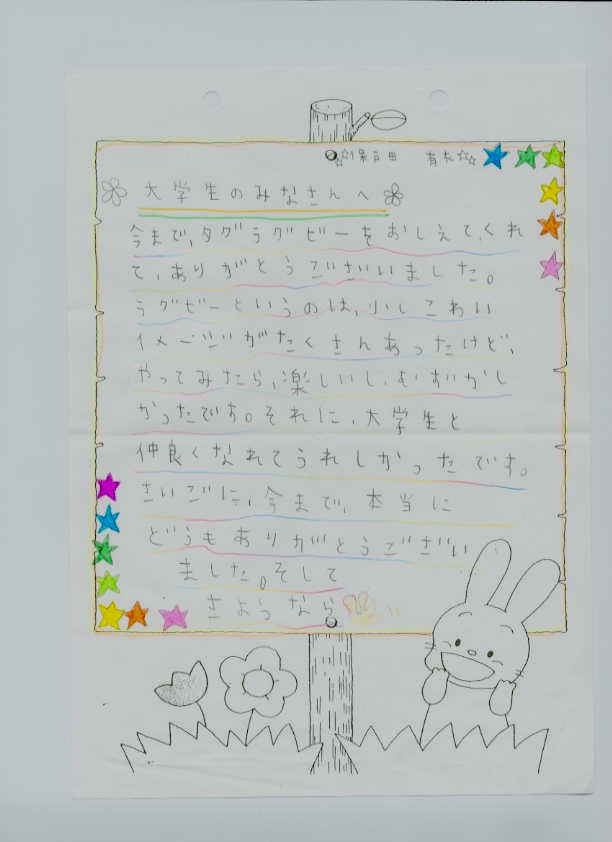 保戸田 有衣
大学生のみなさんへ
今まで、タグラグビーをおしえて、くれ
て、ありがとうございいました。
ラグビーというのは、少しこわい
イメージがたくさんあったけど、
やってみたら、楽しいし、むずかし
かったです。それに、大学生と
仲良くなれてうれしかったです。
さいごに、今まで、本当に
どうもありがとうございい
ました。そして
さようなら